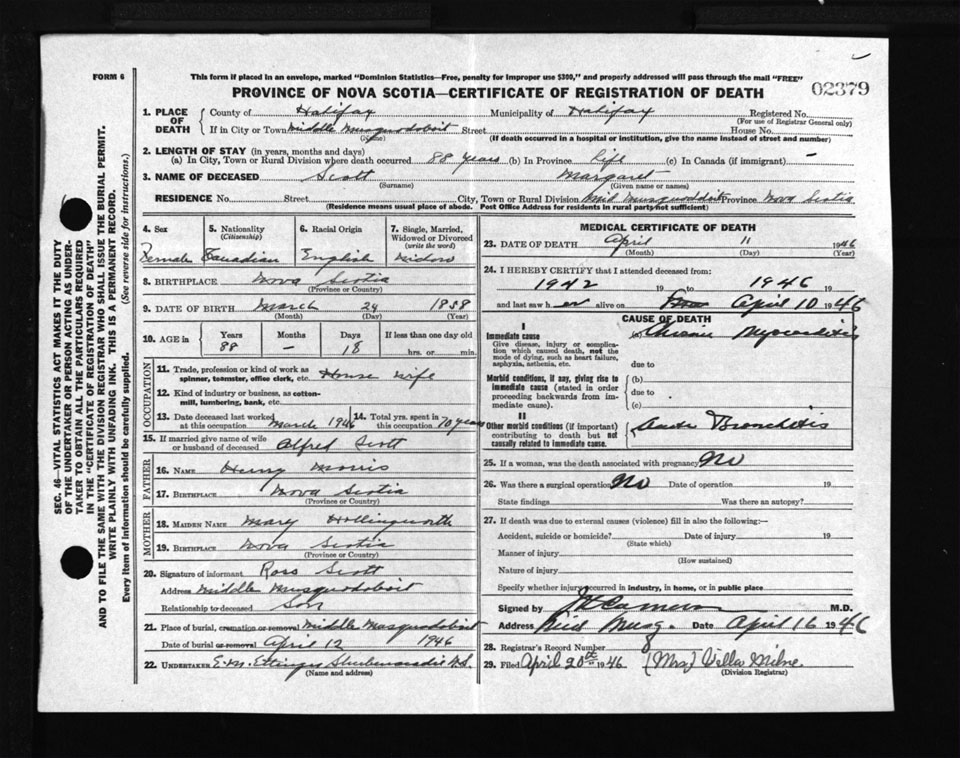 FORM 6
This form if placed in an envelope, marked "Dominion Statistics—Free, penalty for improper use $300," and properly addressed will pass through the mail "FREE"
PROVINCE OF NOVA SCOTIA—CERTIFICATE OF REGISTRATION OF DEATH
02379
1. PLACE OF DEATH County of Halifax Municipality of Halifax Registered No.
(For use of Registrar General only)
If in City or Town Middle Musquodoboit Street House No.
(Name) (If death occurred in a hospital or institution, give the name instead of street and number)
2. LENGTH OF STAY (in years, months and days)
(a) In City, Town or Rural Division where death occurred 88 years (b) In Province Life (c) In Canada (if immigrant) —
3. NAME OF DECEASED Scott Margaret
(Surname) (Given name or names)
RESIDENCE No. Street City, Town or Rural Division Mid Musquodoboit Province Nova Scotia
(Residence means usual place of abode. Post Office Address for residents in rural parts not sufficient)
SEC. 46—VITAL STATISTICS ACT MAKES IT THE DUTY
OF THE UNDERTAKER OR PERSON ACTING AS UNDER-
TAKER TO OBTAIN ALL THE PARTICULARS REQUIRED
IN THE "CERTIFICATE OF REGISTRATION OF DEATH"
AND TO FILE THE SAME WITH THE DIVISION REGISTRAR WHO SHALL ISSUE THE BURIAL PERMIT.
WRITE PLAINLY WITH UNFADING INK. THIS IS A PERMANENT RECORD.
Every item of information should be carefully supplied. (See reverse side for instructions.)
4. Sex 5. Nationality (Citizenship) 6. Racial Origin 7. Single, Married, Widowed or Divorced (write the word)
Female Canadian English Widow
8. BIRTHPLACE Nova Scotia
(Province or Country)
9. DATE OF BIRTH March 24 1858
(Month) (Day) (Year)
10. AGE in Years Months Days If less than one day old
88 — 18 hrs. or min.
OCCUPATION
11. Trade, profession or kind of work as House wife
spinner, teamster, office clerk, etc.
12. Kind of industry or business, as cotton-
mill, lumbering, bank, etc.
13. Date deceased last worked at this occupation March 1946 14. Total yrs. spent in this occupation 70 years
15. If married give name of wife or husband of deceased Alfred Scott
FATHER
16. NAME Henry Morris
17. BIRTHPLACE Nova Scotia
(Province or Country)
MOTHER
18. MAIDEN NAME Mary Hollingworth
19. BIRTHPLACE Nova Scotia
(Province or Country)
20. Signature of informant Ross Scott
Address Middle Musquodoboit
Relationship to deceased Son
21. Place of burial, cremation or removal Middle Musquodoboit
Date of burial or removal April 12 1946
22. UNDERTAKER E.M. Ettinger Shubenacadie N.S.
(Name and address)
MEDICAL CERTIFICATE OF DEATH
23. DATE OF DEATH April 11 1946
(Month) (Day) (Year)
24. I HEREBY CERTIFY that I attended deceased from:
1942 19 to 1946 19
and last saw h er alive on April 10 1946
CAUSE OF DEATH
I
Immediate cause (a) Chronic Myocarditis
Give disease, injury or complica-
tion which caused death, not the
mode of dying, such as heart failure,
asphyxia, asthenia, etc.
due to
Morbid conditions, if any, giving rise to
immediate cause (stated in order
proceeding backwards from im-
mediate cause).
(b)
due to
(c)
II
Other morbid conditions (if important)
contributing to death but not
causally related to immediate cause.
Acute Bronchitis
25. If a woman, was the death associated with pregnancy? No
26. Was there a surgical operation? No Date of operation 19
State findings Was there an autopsy?
27. If death was due to external causes (violence) fill in also the following:—
Accident, suicide or homicide? Date of injury 19
(State which)
Manner of injury
(How sustained)
Nature of injury
Specify whether injury occurred in industry, in home, or in public place
Signed by Cameron M.D.
Address Mid Musq. Date April 16 1946
28. Registrar's Record Number
29. Filed April 20th 1946 (Mrs) Vella Milne
(Division Registrar)